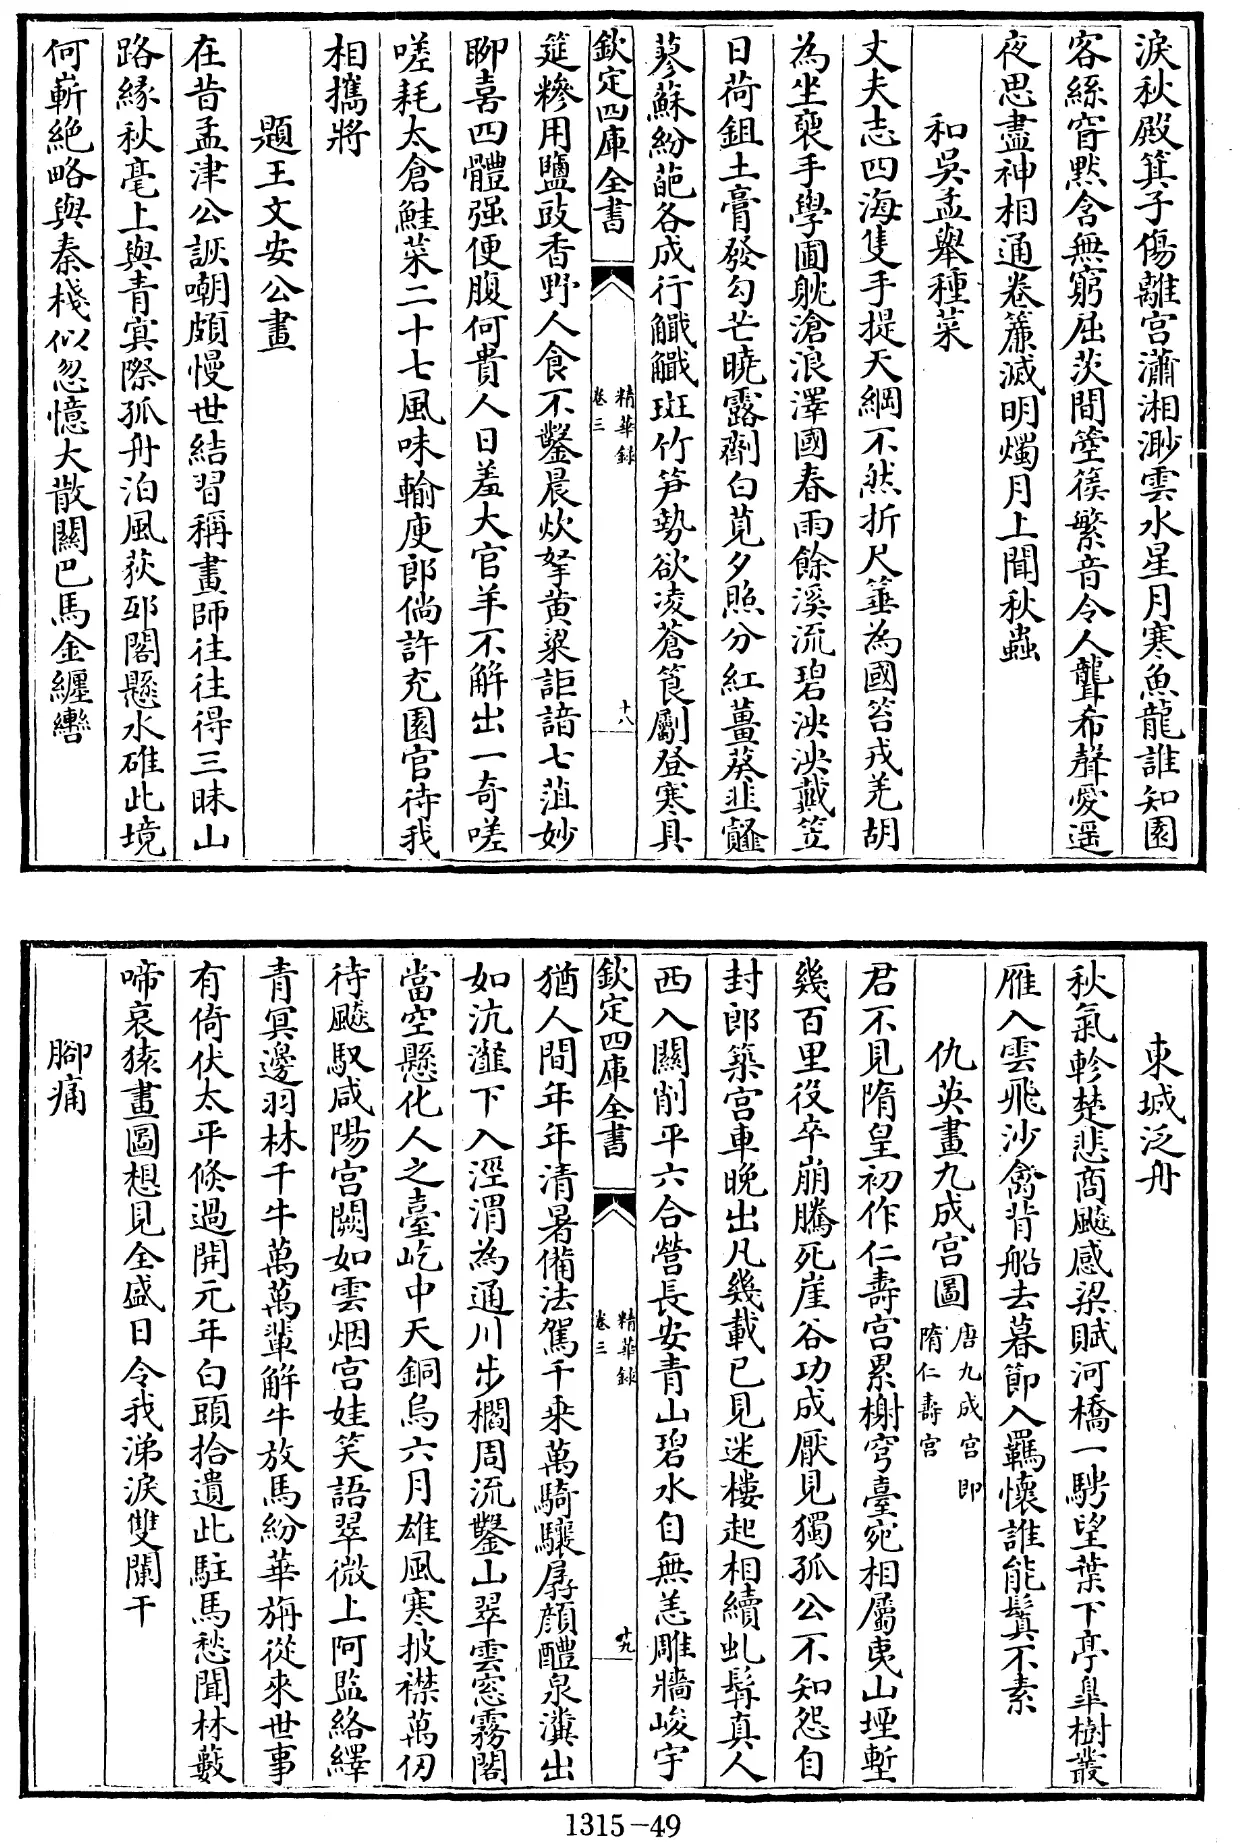 淚秋殿箕子傷離宮瀟湘渺雲水星月寒魚龍誰知園
客絲窅默含無窮屈茨間箜篌繁音令人聾希聲愛遥
夜思盡神相通卷簾滅明燭月上聞秋蟲
和吳孟舉種菜
丈夫志四海隻手提天綱不然折尺箠為國笞戎羌胡
為坐褏手學圃躭滄浪澤國春雨餘溪流碧泱泱戴笠
日荷鉏土膏發勾芒曉露劑白莧夕照分紅薑葵韭韰
蓼蘇紛葩各成行觿觿斑竹笋勢欲凌蒼筤劚登寒具
欽定四庫全書
精華録
卷三
十八
筵糝用鹽豉香野人食不鑿晨炊拏黄粱詎諳七菹妙
聊喜四體强便腹何貴人日羞大官羊不解出一奇嗟
嗟耗太倉鮭菜二十七風味輸庾郎倘許充園官待我
相攜將
題王文安公畫
在昔孟津公詼嘲頗慢世結習稱畫師往往得三昧山
路緣秋毫上與青冥際孤舟泊風荻郅閣懸水碓此境
何嶄絶略與秦棧似忽憶大散關巴馬金纏轡
東城泛舟
秋氣軫楚悲商飈感梁賦河橋一騁望葉下亭臯樹叢
雁入雲飛沙禽背船去暮節入羈懷誰能鬒不素
仇英畫九成宫圖
唐九成宫即
隋仁壽宫
君不見隋皇初作仁壽宫累榭穹臺宛相屬夷山堙塹
幾百里役卒崩騰死崖谷功成厭見獨孤公不知怨自
封郎築宫車晚出凡幾載已見迷樓起相續虬髯真人
西入關削平六合營長安青山碧水自無恙雕牆峻宇
欽定四庫全書
精華録
卷三
十九
猶人間年年清暑備法駕千乗萬騎驤孱顔醴泉瀵出
如沆瀣下入涇渭為通川步櫩周流鑿山翠雲窓霧閣
當空懸化人之臺屹中天銅烏六月雄風寒披襟萬仞
待飈馭咸陽宫闕如雲烟宫娃笑語翠微上阿監絡繹
青冥邊羽林千牛萬萬輩解牛放馬紛華旃從來世事
有倚伏太平倐過開元年白頭拾遺此駐馬愁聞林藪
啼哀猿畫圖想見全盛日令我涕淚雙闌干
腳痛
1315-49